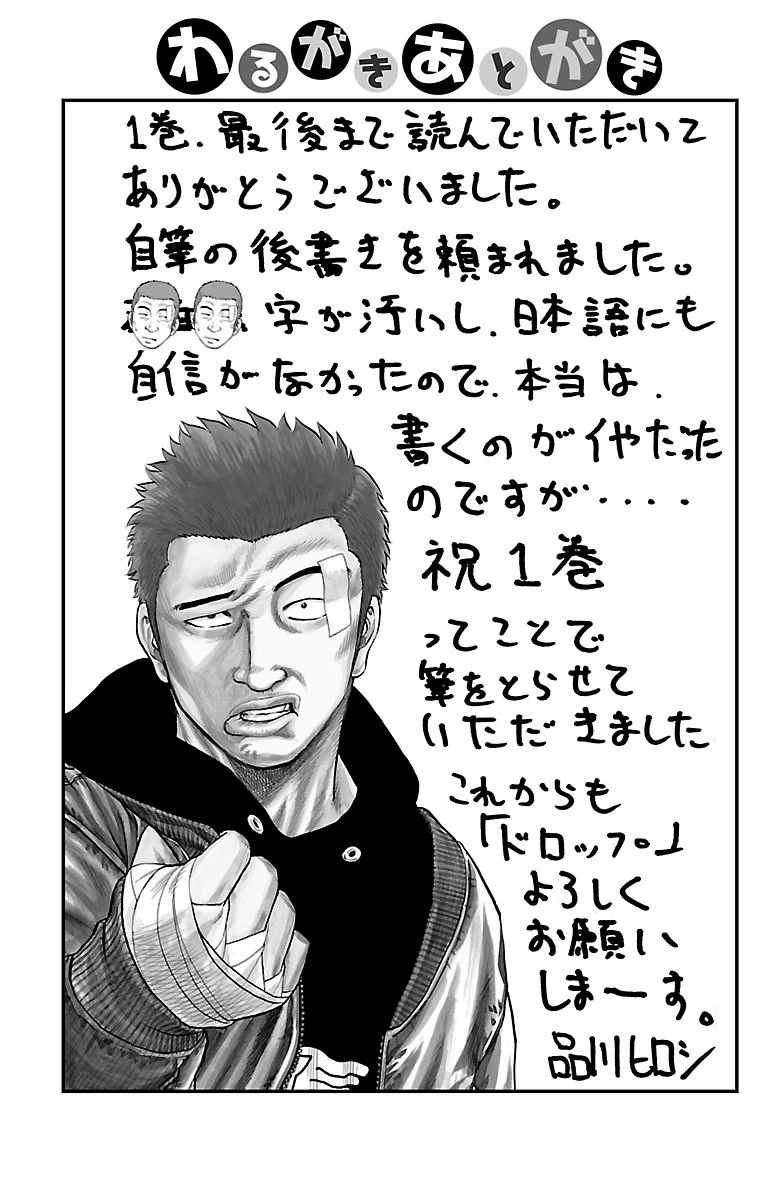 わるがきあとがき
1巻、最後まで読んでいただいて
ありがとうございました。
自筆の後書きを頼まれました。
字が汚いし、日本語にも
自信がなかったので、本当は、
書くのがイヤだった
のですが・・・・
祝1巻
ってことで
筆をとらせて
いただきました
これからも
「ドロップ」
よろしく
お願い
しまーす。
品川ヒロシ